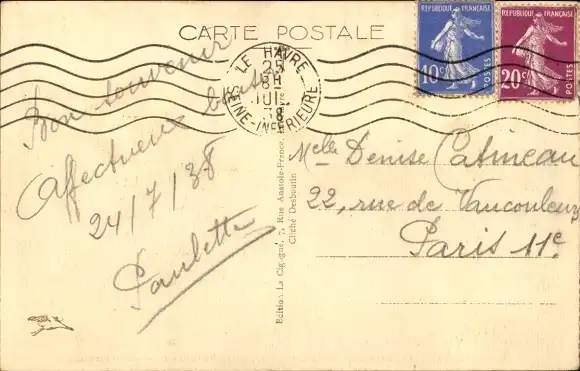 CARTE POSTALE
REPUBLIQUE FRANÇAISE
10c
POSTES
REPUBLIQUE FRANÇAISE
20c
POSTES
LE HAVRE
25
8H
JUIL
38
SEINE-INFÉRIEURE
Bon souvenir
Affectueux baisers
24/7/38
Paulette
Edition La Cigogne, 7, Rue Anatole-France,
Cliché Desboutin
Melle Denise Catineau
22, rue de Vaucouleurs
Paris 11e